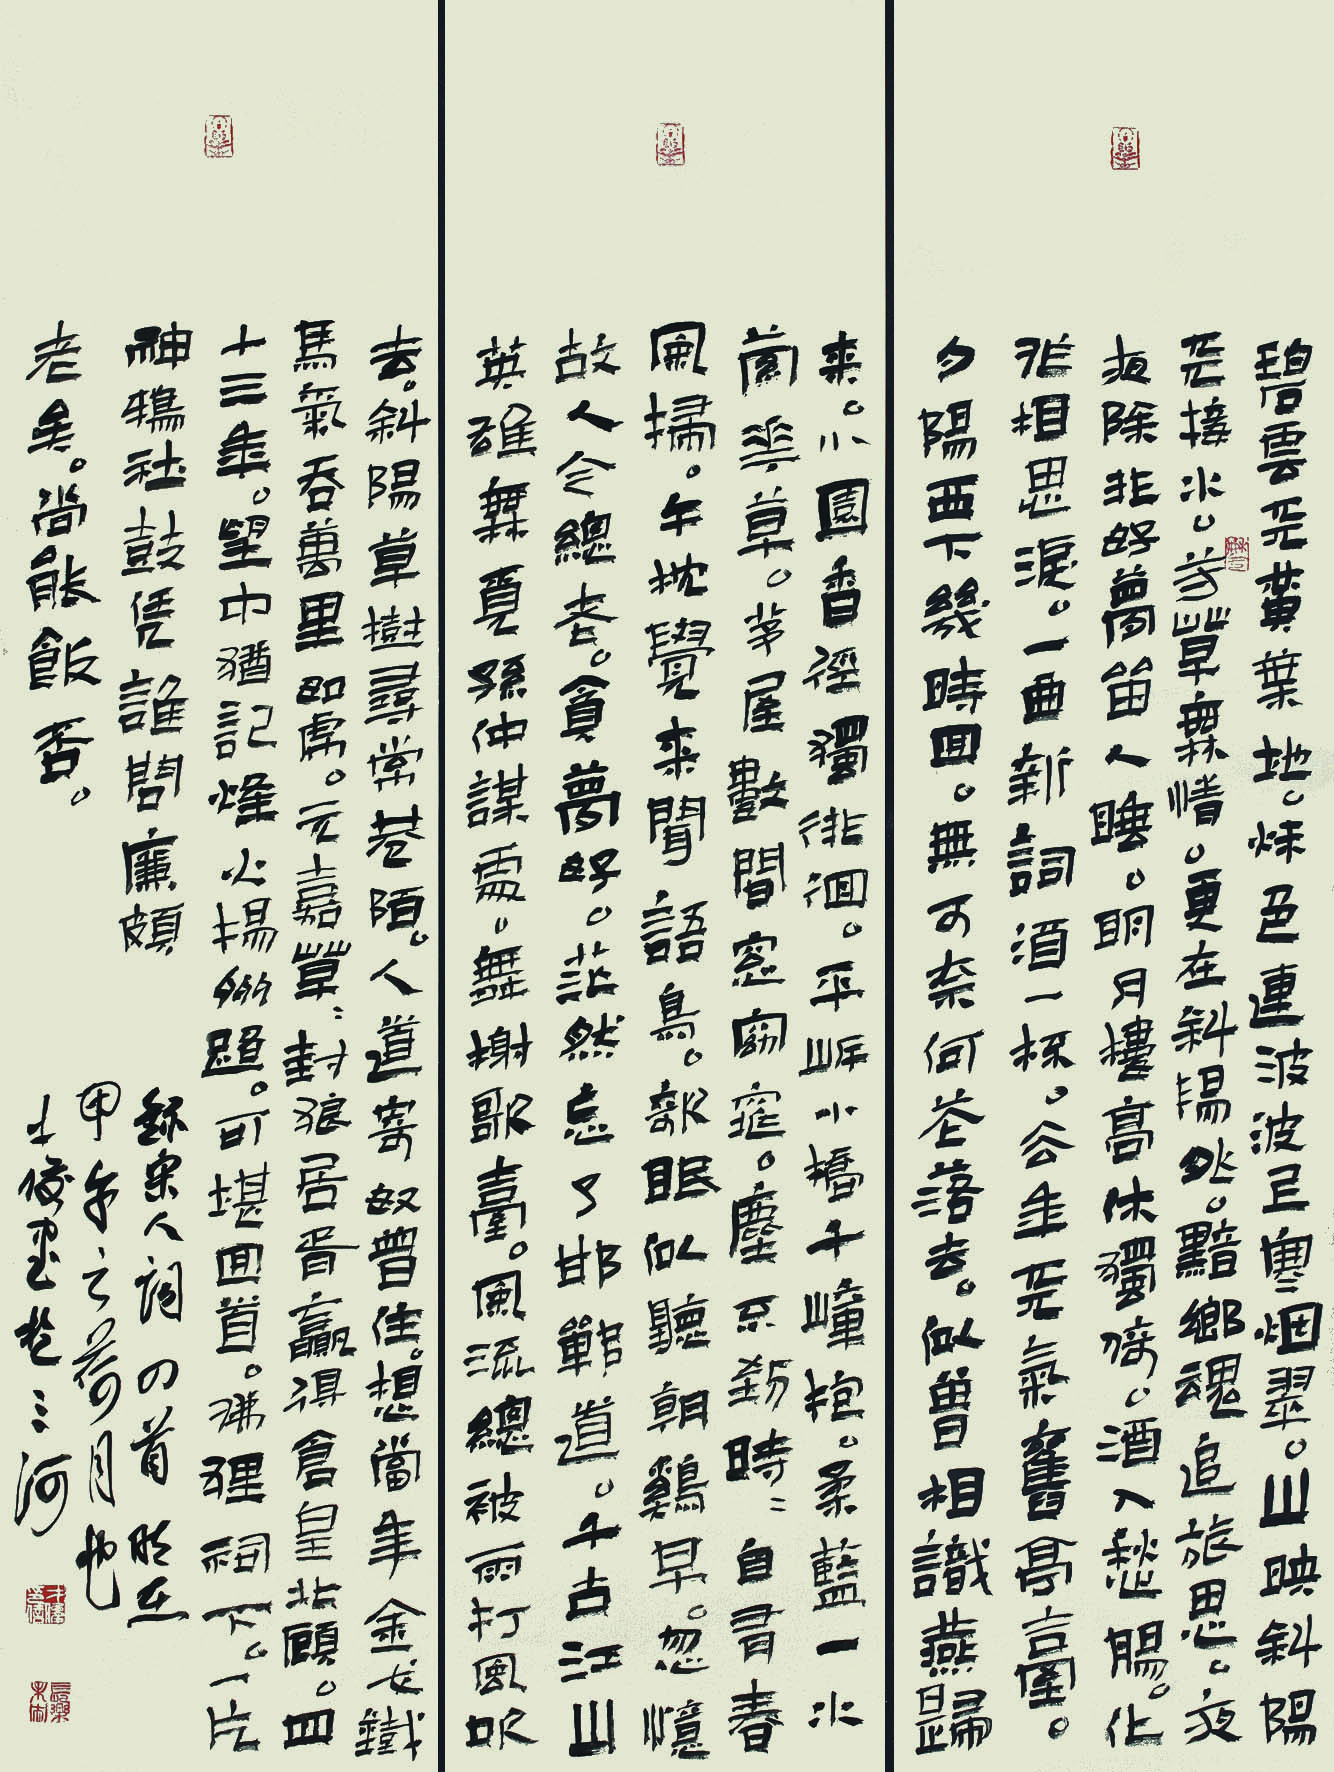 碧雲天黃葉地。秋色連波波上寒烟翠。山映斜陽
天接水。芳草無情。更在斜陽外。黯鄉魂追旅思。夜
夜除非好夢留人睡。明月樓高休獨倚。酒入愁腸。化
作相思淚。一曲新詞酒一杯。去年天氣舊亭臺。
夕陽西下幾時回。無可奈何花落去。似曾相識燕歸
來。小園香徑獨徘徊。平岸小橋千嶂抱。柔藍一水
縈花草。茅屋數間窗窈窕。塵不到時〻自有春
風掃。午枕覺來聞語鳥。欹眠似聽朝鷄早。忽憶
故人今總老。貪夢好。茫然忘了邯鄲道。千古江山
英雄無覓孫仲謀處。舞榭歌臺。風流總被雨打風吹
去。斜陽草樹尋常巷陌。人道寄奴曾住。想當年金戈鐵
馬氣吞萬里如虎。元嘉草〻封狼居胥贏得倉皇北顧。四
十三年。望中猶記烽火揚州路。可堪回首。佛狸祠下。一片
神鴉社鼓凭誰問廉頗
老矣。尚能飯否。
錄宋人詞四首時在
甲午之荷月也
士俊書於三河